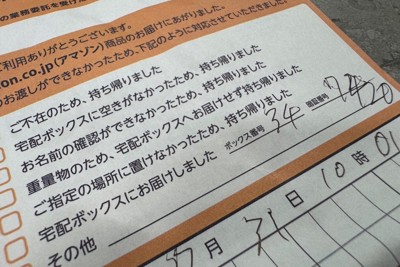 の業務委託を受け
ご利用ありがとうございます。
on.co.jp(アマゾン)商品のお届けにあがりました。
お渡しができなかったため、下記のように対応させていただきました
ご不在のため、持ち帰りました
宅配ボックスに空きがなかったため、持ち帰りました
お名前の確認ができなかったため、持ち帰りました
重量物のため、宅配ボックスへお届けせず持ち帰りました
ご指定の場所に置けなかったため、持ち帰りました
宅配ボックスにお届けしました ボックス番号 34 暗証番号
その他
月 31 10時01